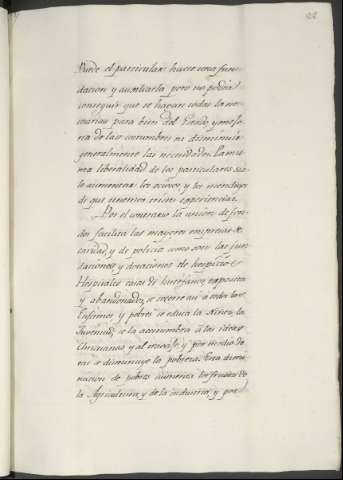 22
Puede el particular hacer una fun-
dacion y auxiliarla pero no podra
conseguir que se hagan todas las ne-
cesarias para bien del Estado y mejo-
ra de las costumbres ni disminuir
generalmente las necesidades. La mis-
ma liberalidad de los particulares so-
lo aumentara los ociosos y los mendigos
de que tenemos tristes experiencias.
Por el contrario la union de fon-
dos facilita las mayores empresas de
caridad y de policia como son las fun-
daciones y dotaciones de hospicios
Hospitales casas de huerfanos, expositos
y abandonados, se socorre asi a todos los
Enfermos y pobres se educa la Niñez, la
Juventud, se la acostumbra á las ideas
christianas y al trabajo, y por medio de
el se disminuye la pobreza. Esta dismi-
nucion de pobres aumenta los frutos de
la Agricultura y de la industria, y por